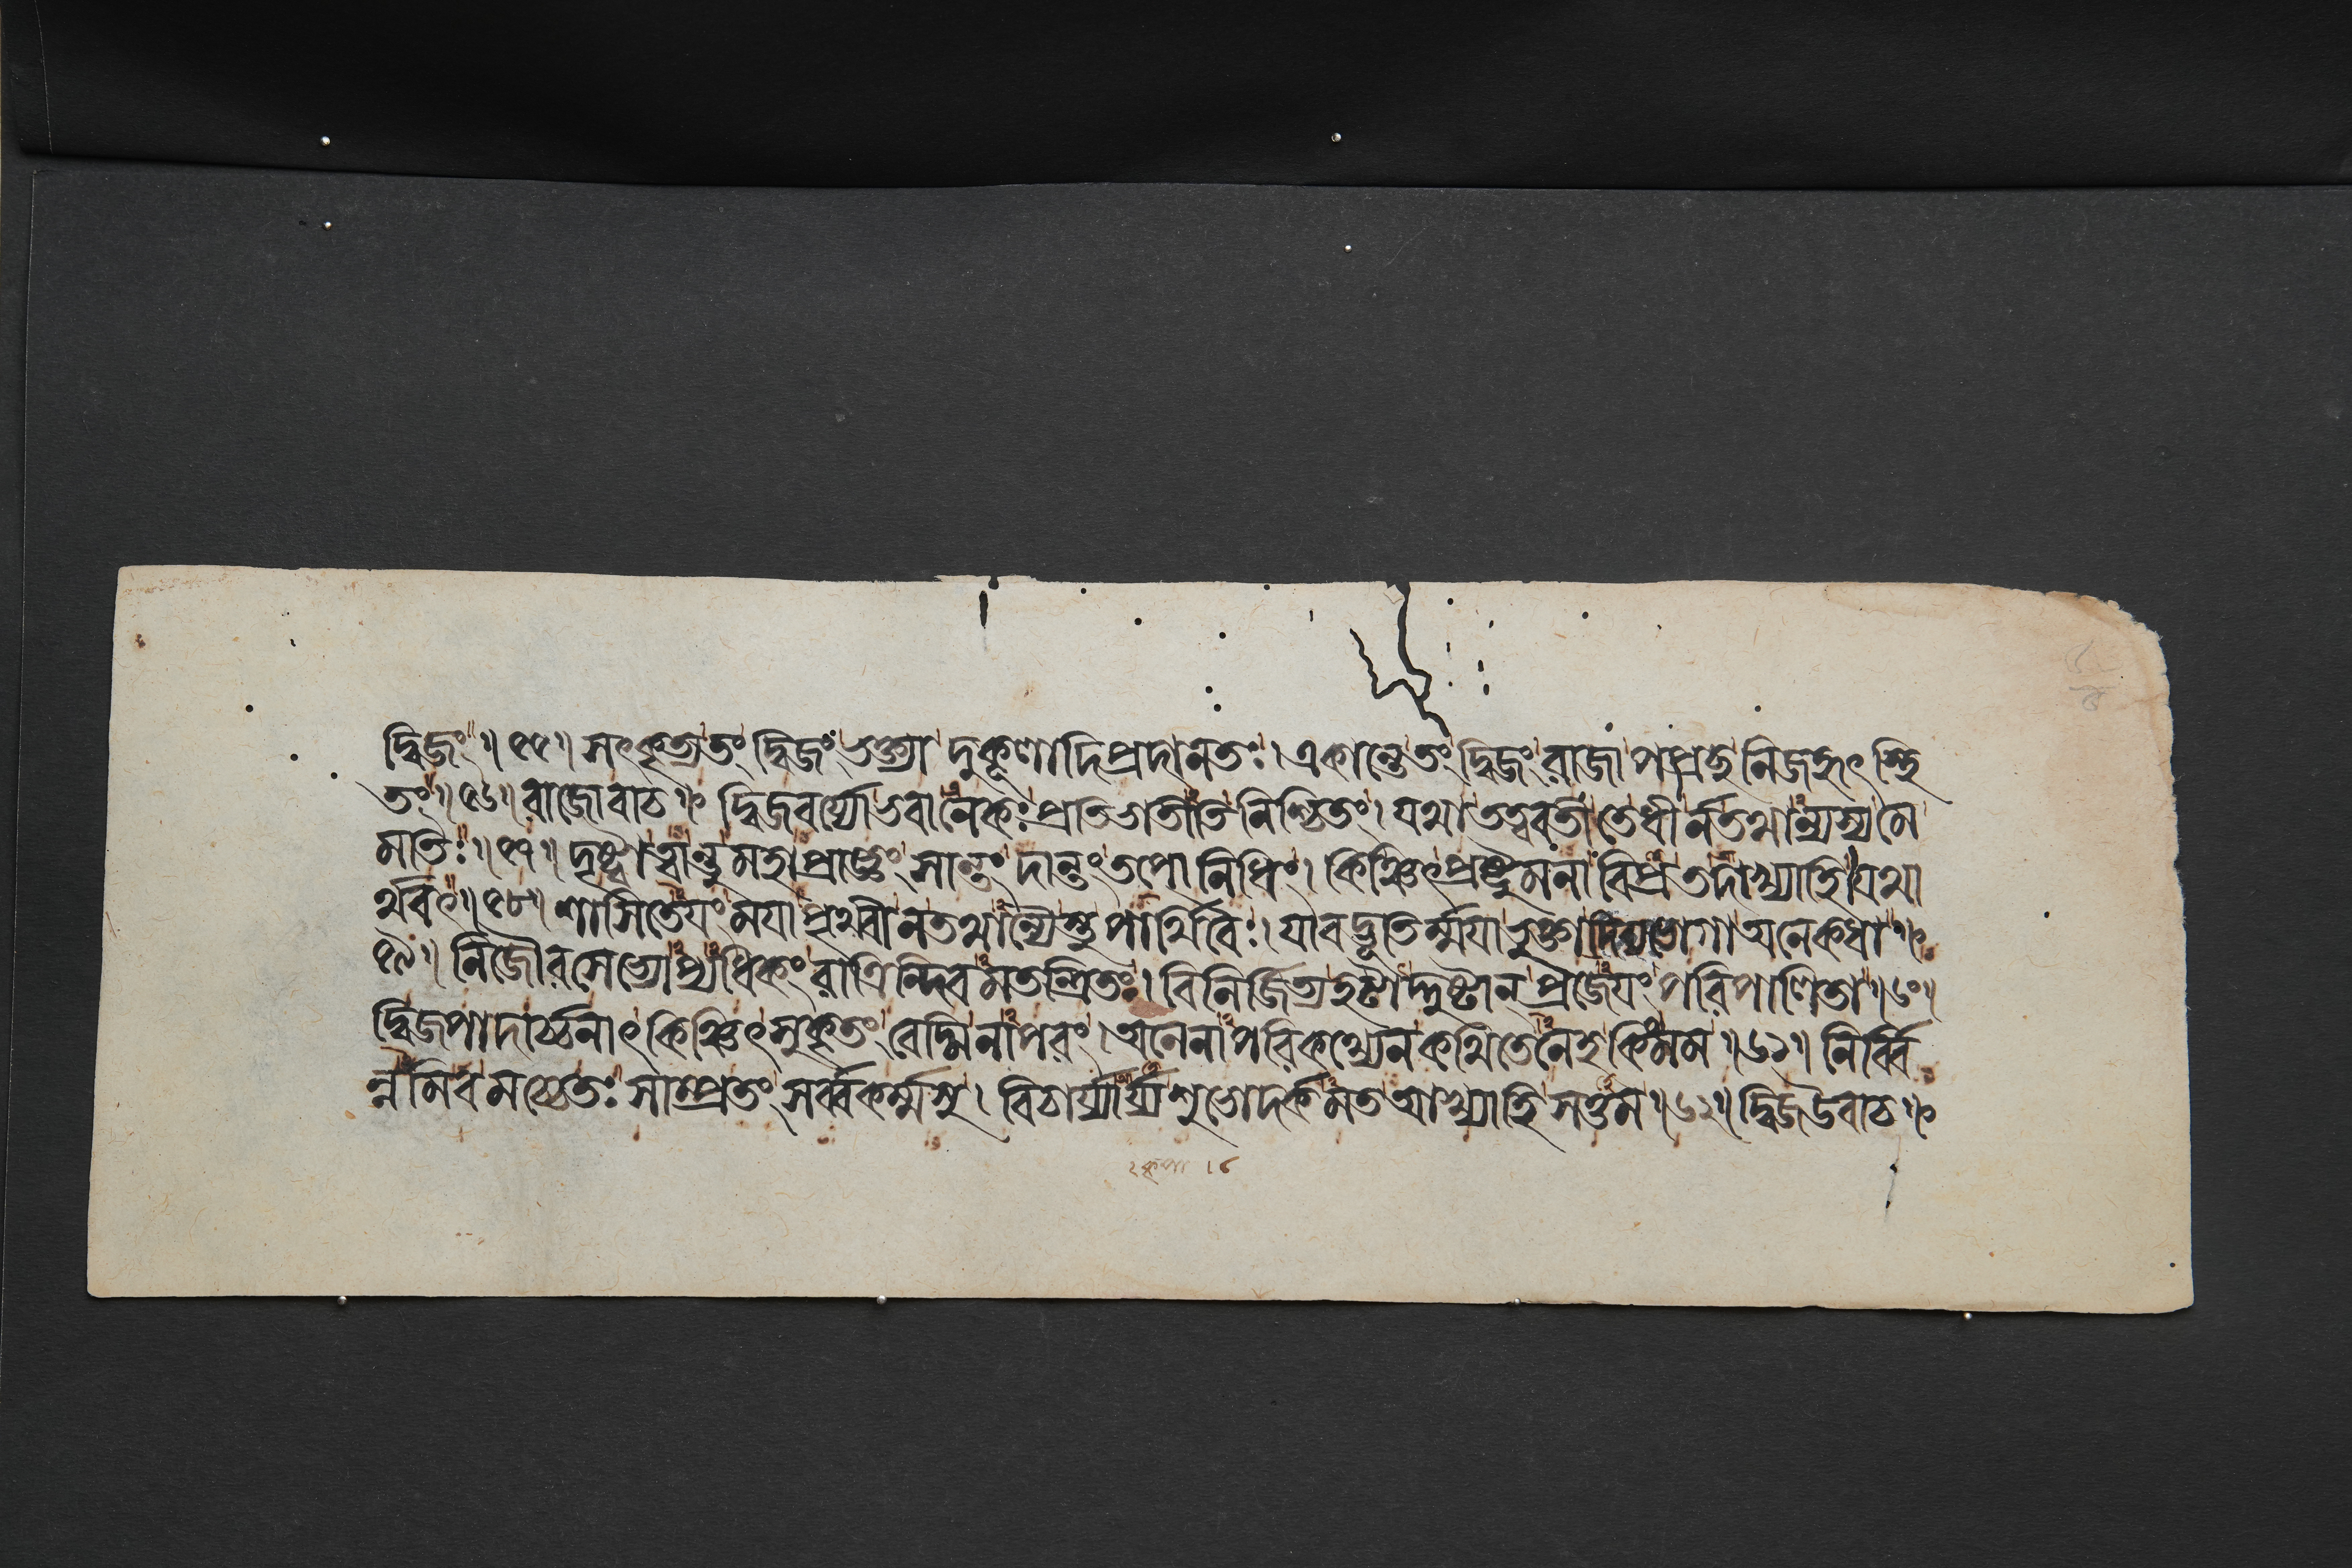 দ্বিজং ॥ ৫৫ ॥ সৎকৃত্য তং দ্বিজং ভক্ত্যা দুকূলাদিপ্রদানতঃ । একান্তে তং দ্বিজং রাজা পপ্রচ্ছ নিজহৃৎস্থি
তং ॥ ৫৬ ॥ রাজোবাচ ॥ দ্বিজবর্য্যো ভবানেকঃ প্রতিভাতীতি নিশ্চিতং । যথা তত্ত্ববতী তে ধীর্ন তথান্যস্য মে
মতিঃ ॥ ৫৭ ॥ দৃষ্ট্বা ত্বান্তু মহাপ্রাজ্ঞং সান্তং দান্তং তপোনিধিং । কিঞ্চিৎপ্রষ্টুমনা বিপ্র তদাখ্যাহি যথা
র্থবৎ ॥ ৫৮ ॥ শাসিতেযং মযা পৃথ্বী ন তথান্যৈস্তু পার্থিবৈঃ । যাবদ্ভূতির্ম্মযা ভুক্তা দিব্যভোগা অনেকধা ॥
৫৯ ॥ নিজৌরসেভ্যোপ্যধিকং রাত্রিন্দিবমতন্দ্রিতঃ । বিনির্জিত্য হঠাদ্দুষ্টান্ প্রজেযং পরিপালিতা ॥ ৬০ ॥
দ্বিজপাদার্চ্চনাৎ কিঞ্চিৎ সুকৃতং বেদ্মি নাপরং । অনেনাপরিকথ্যেন কথিতেনেহ কিং মম ॥ ৬১ ॥ নির্ব্বি
ন্নমিব মচ্চেতঃ সাম্প্রতং সর্ব্বকর্ম্মসু । বিচার্য্যার্য্য শুভোদর্কমত আখ্যাহি সত্তম ॥ ৬২ ॥ দ্বিজ উবাচ ॥